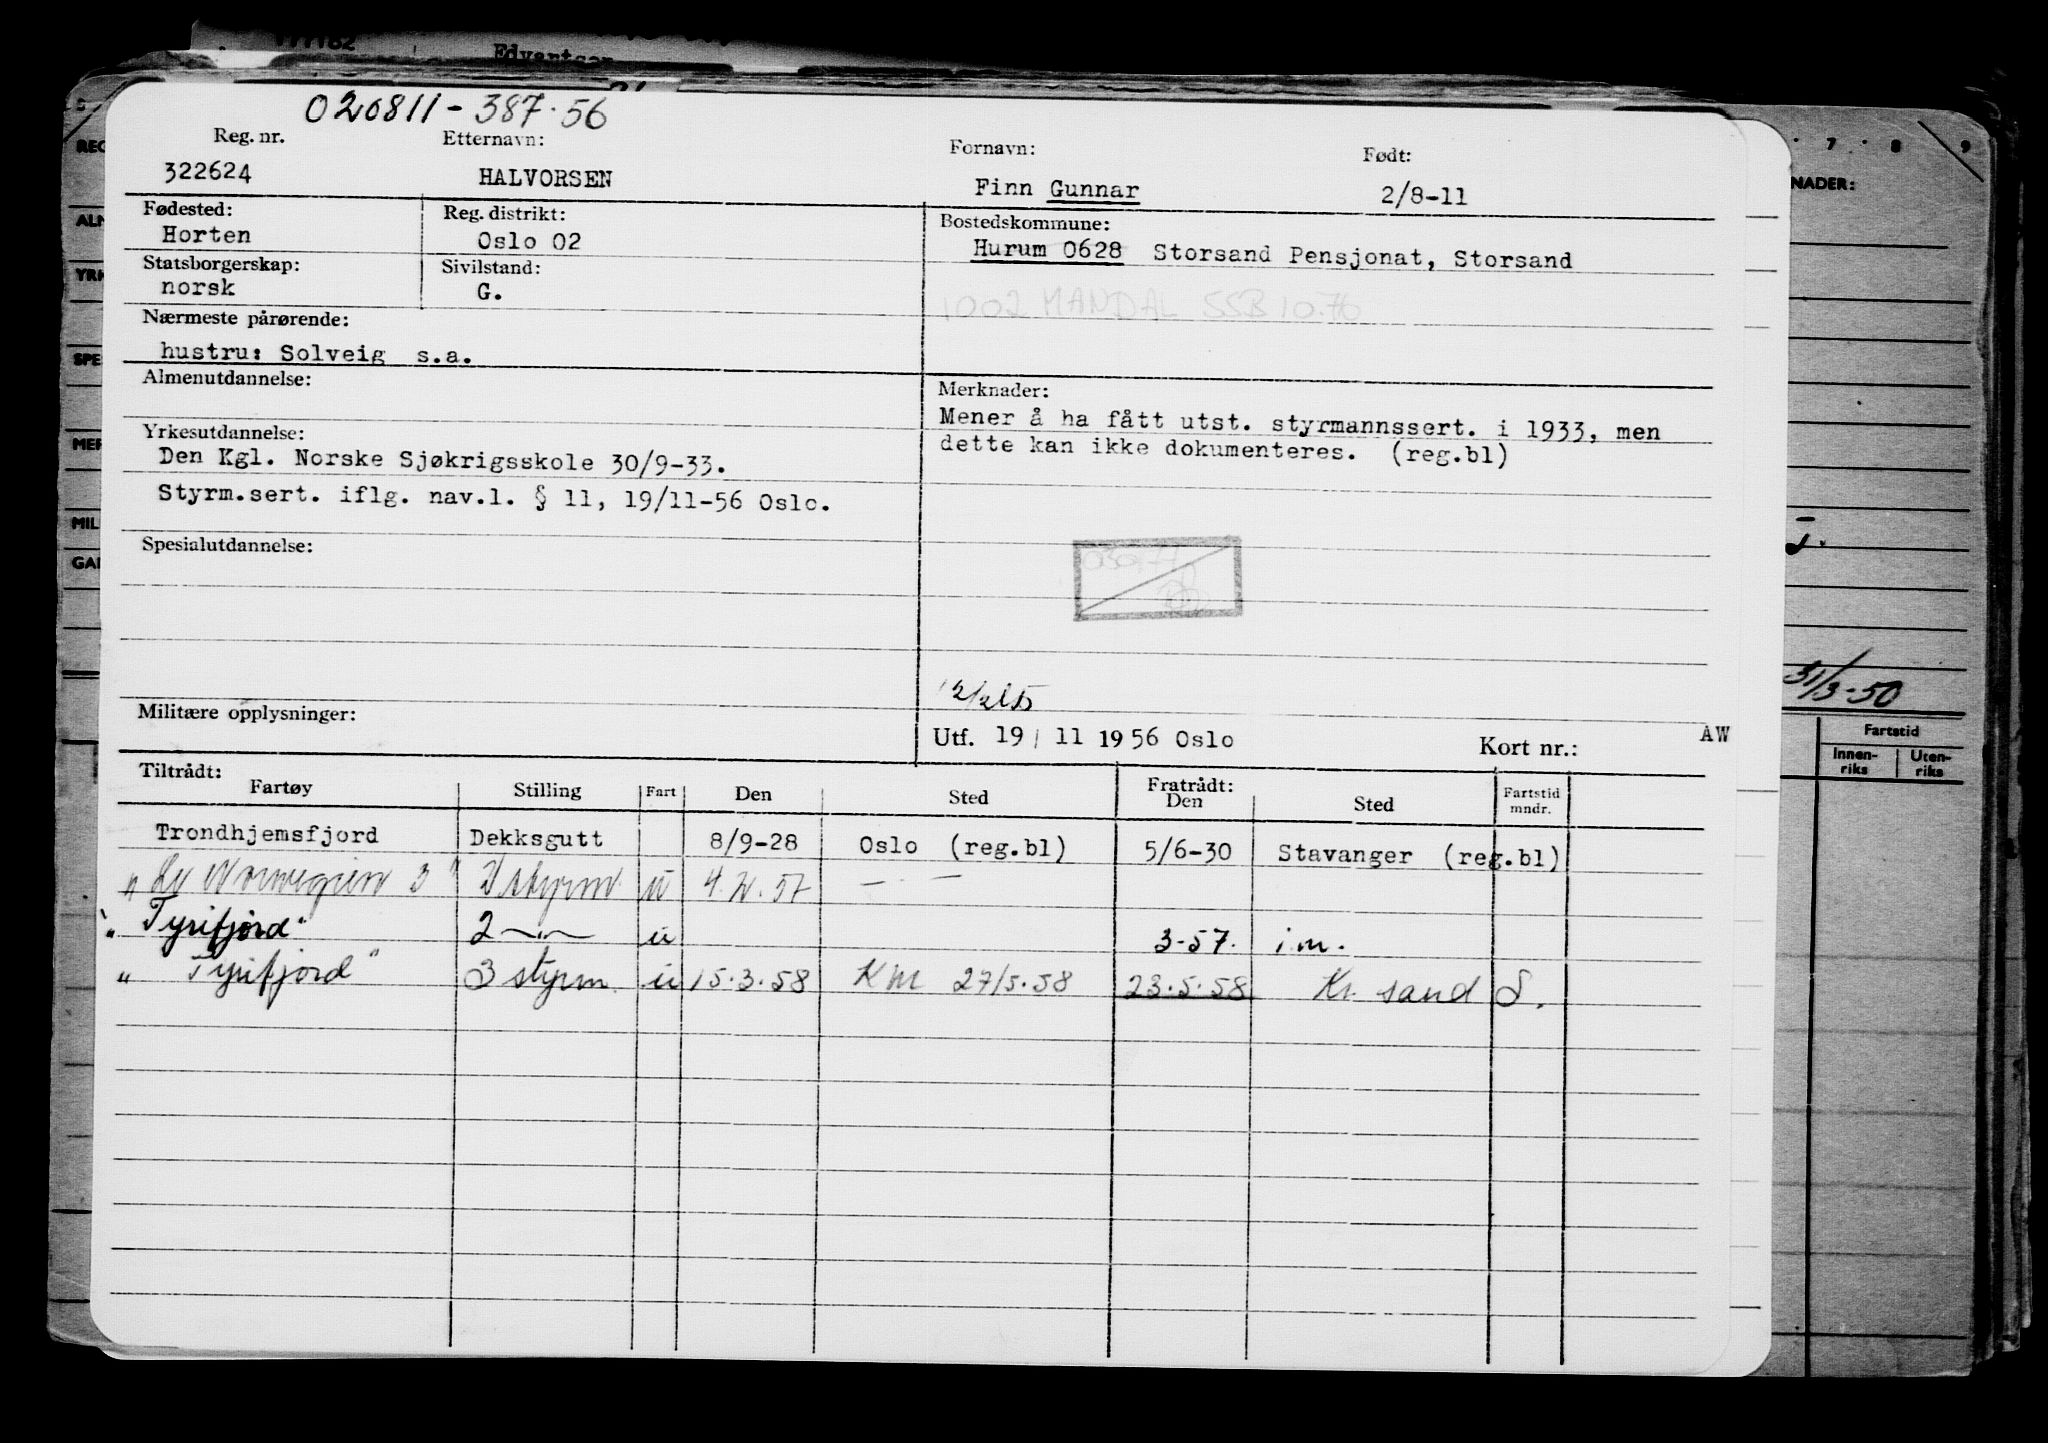 177182
Edvartsen
020811 - 387.56
Reg. nr. Etternavn: Fornavn: Født:
322624 HALVORSEN Finn Gunnar 2/8-11
Fødested: Reg. distrikt: Bostedskommune:
Horten Oslo 02 Hurum 0628 Storsand Pensjonat, Storsand
Statsborgerskap: Sivilstand:
norsk G.
1002 MANDAL SSB 10.76
Nærmeste pårørende:
hustru: Solveig s.a.
Almenutdannelse: Merknader:
Mener å ha fått utst. styrmannssert. i 1933, men
dette kan ikke dokumenteres. (reg.bl)
Yrkesutdannelse:
Den Kgl. Norske Sjøkrigsskole 30/9-33.
Styrm.sert. iflg. nav.l. § 11, 19/11-56 Oslo.
Spesialutdannelse:
Militære opplysninger:
Utf. 19/ 11 1956 Oslo Kort nr.: AW
Tiltrådt: Fratrådt:
Fartøy Stilling Fart Den Sted Den Sted Fartstid mndr.
Trondhjemsfjord Dekksgutt 8/9-28 Oslo (reg.bl) 5/6-30 Stavanger (reg.bl)
"Norwegien 3" 2 styrm. u 57 — . —
"Tyrifjord" 2 —"— u 3-57. i.m.
" Tyrifjord" 3 styrm. u 15.3.58 KM 27/5.58 23.5.58 Kr. sand S.
7 8 9
NADER:
31/3-50
Fartstid
Innen-
riks
Uten-
riks
REG
ALM
YRK
SPE
MER
MIL
GAR